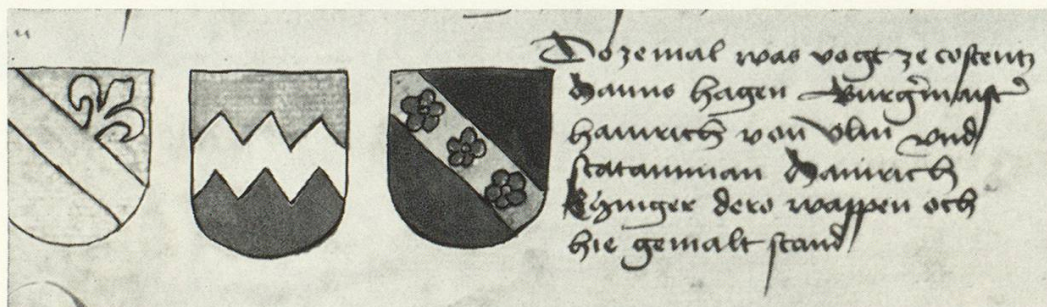 Do zemal was vogt ze costentz
Hanns hagen Burgermaister
hainrich von Vlm vnd
statamman Hainrich
Ehinger dero wappen och
hie gemalt stand